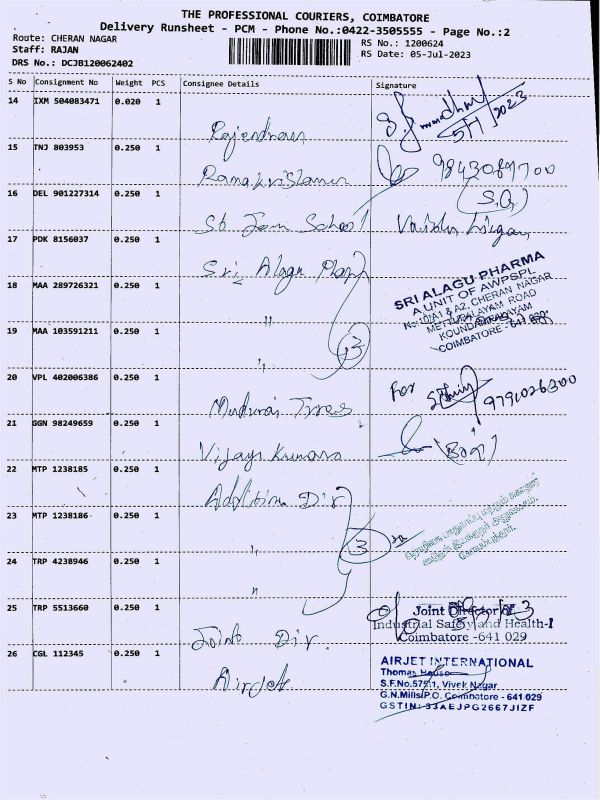 THE PROFESSIONAL COURIERS, COIMBATORE
Delivery Runsheet - PCM - Phone No.:0422-3505555 - Page No.:2
Route: CHERAN NAGAR
RS No.: 1200624
Staff: RAJAN
RS Date: 05-Jul-2023
DRS No.: DCJB120062402
S No Consignment No Weight PCS Consignee Details Signature
14 IXM 504083471 0.020 1
Rajendran 5/7/2023
15 TNJ 803953 0.250 1
Ramakrishnan
16 DEL 901227314 0.250 1
St Jam School
17 PDK 8156037 0.250 1
Sri Alagu
18 MAA 289726321 0.250 1
"
SRI ALAGU PHARMA
A UNIT OF AWPSPL
No:10/A1 & A2, CHERAN NAGAR
METTUPALAYAM ROAD
KOUNDAMPALAYAM
COIMBATORE - 641
19 MAA 103591211 0.250 1
" 3
20 VPL 402006386 0.250 1
Tyres For 9791026300
21 GGN 98249659 0.250 1
Vijaya Kumar
22 MTP 1238185 0.250 1
Addition Dir
23 MTP 1238186 0.250 1
" 3
24 TRP 4238946 0.250 1
"
25 TRP 5513660 0.250 1
Joint Dir.
Joint Director of
Industrial Safety and Health-I
Coimbatore -641 029
26 CGL 112345 0.250 1
Airjet
AIRJET INTERNATIONAL
Thomas House
S.F.No.575/1, Vivek Nagar
G.N.Mills P.O. Coimbatore - 641 029
GSTIN: 33AEJPG2667J1ZF